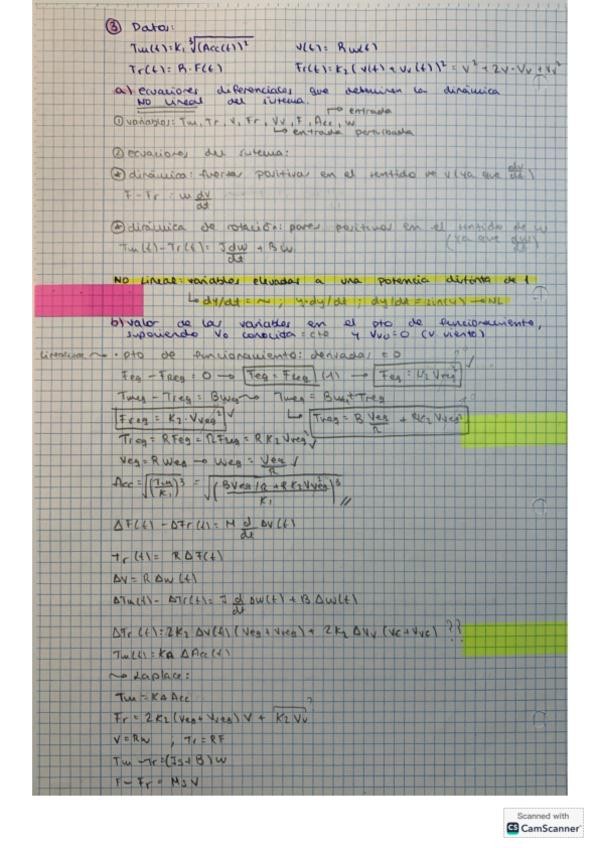 ③ Datos:
Tm(t)=K₁ ∛(Acc(t))² V(t)= Rω(t)
Tr(t)= R·F(t) Fr(t)=K₂(v(t)+Vv(t))² = V²+2V·Vv+Vv²
a) ecuaciones diferenciales que determinen la dinámica
NO LINEAL del sistema.
→ entrada
① variables: Tm, Tr, V, Fr, Vv, F, Acc, w
↳ entrada perturbada
② ecuaciones del sistema:
* dinámica: fuerzas positivas en el sentido de v (ya que dv/dt)
F - Fr = m dv/dt
* dinámica de rotación: pares positivos en el sentido de w
(ya que dw/dt)
Tm(t)-Tr(t)= J dw/dt + Bω
NO LINEAL: variables elevadas a una potencia distinta de 1
↳ dy/dt = ~ ; y·dy/dt ; dy/dt = sin(y) → NL
b) valor de las variables en el pto de funcionamiento,
suponiendo Vo conocida = cte y Vvo=0 (v viento)
Linealizar ~ · pto de funcionamiento: derivadas = 0
Feq - Freq = 0 → Feq = Freq (1) → Feq = K₂ Vveq² ✓
Tmeq - Treq = Bweq → Tmeq = Bweq + Treq
Freq = K₂·Vveq² ✓ ↳ Tmeq = B Veq/R + RK₂ Vveq²
Treq = RFeq = RFreq = RK₂Vveq² ✓
Veq = R weq → weq = Veq/R ✓
Acc = √(Tm/K₁)³ = √((BVeq/R + RK₂Vveq²)/K₁)³ //
ΔF(t) - ΔFr(t) = M d/dt ΔV(t)
Tr(t) = RΔF(t)
ΔV = RΔw(t)
ΔTm(t) - ΔTr(t) = J d/dt Δw(t) + BΔw(t)
ΔTr(t)=2K₂ ΔV(t)(Veq+Vveq)+ 2K₂ ΔVv(Ve+Vve) ??
Tm(t)=KA ΔAcc(t)
~ Laplace:
Tm = KA Acc
Fr = 2K₂(Veq+Vveq)V + K₂Vv ?
V=Rw ; Tr=RF
Tm - Tr=(Js+B)w
F - Fr = MsV
Scanned with
CS CamScanner